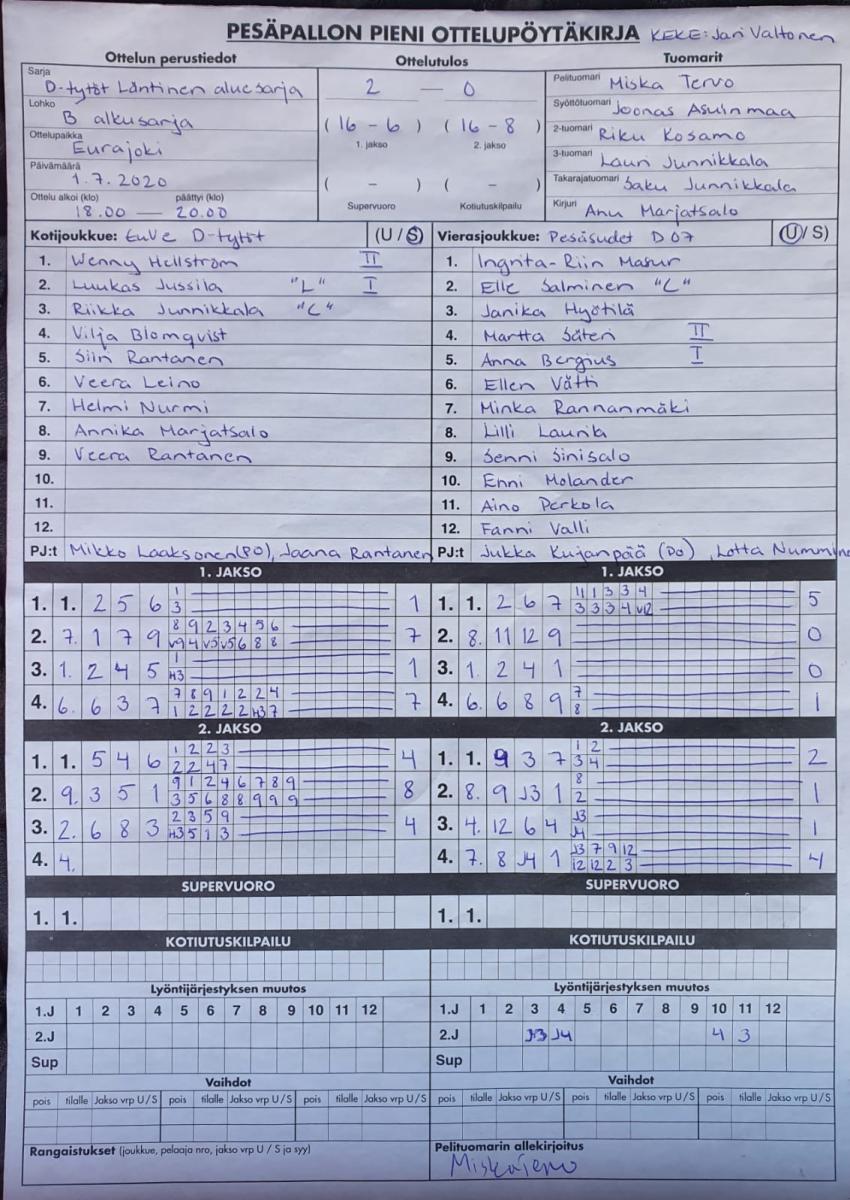 PESÄPALLON PIENI OTTELUPÖYTÄKIRJA KEKE: Jari Valtonen
Ottelun perustiedot
Sarja D-tytöt Läntinen aluesarja
Lohko B alkusarja
Ottelupaikka Eurajoki
Päivämäärä 1.7.2020
Ottelu alkoi (klo) päättyi (klo)
18.00 — 20.00
Ottelutulos
2 — 0
(16 - 6) (16 - 8)
1. jakso 2. jakso
( - ) ( - )
Supervuoro Kotiutuskilpailu
Tuomarit
Pelituomari Miska Tervo
Syöttötuomari Joonas Asuinmaa
2-tuomari Riku Kosamo
3-tuomari Lauri Junnikkala
Takarajatuomari Saku Junnikkala
Kirjuri Anu Marjatsalo
Kotijoukkue: EuVe D-tytöt (U / S)
1. Wenny Hellström II
2. Luukas Jussila "L" I
3. Riikka Junnikkala "C"
4. Vilja Blomqvist
5. Siiri Rantanen
6. Veera Leino
7. Helmi Nurmi
8. Annika Marjatsalo
9. Veera Rantanen
10.
11.
12.
PJ:t Mikko Laaksonen (PO), Jaana Rantanen
Vierasjoukkue: Pesäsudet D07 (U / S)
1. Ingrita-Riin Masur
2. Elle Salminen "C"
3. Janika Hyötilä
4. Martta Säteri II
5. Anna Bergius I
6. Ellen Vätti
7. Minka Rannanmäki
8. Lilli Laurila
9. Senni Sinisalo
10. Enni Molander
11. Aino Perkola
12. Fanni Valli
PJ:t Jukka Kujanpää (DO), Lotta Nummine
1. JAKSO
1. 1. 2 5 6 1 1
3
2. 7. 1 7 9 8 9 2 3 4 5 6 7
v9 4 v5 v5 6 8 8
3. 1. 2 4 5 1 1
H3
4. 6. 6 3 7 7 8 9 1 2 2 4 7
1 2 2 2 2 H3 7
2. JAKSO
1. 1. 5 4 6 1 2 2 3 4
2 2 4 7
2. 9. 3 5 1 9 1 2 4 6 7 8 9 8
3 5 6 8 8 9 9 9
3. 2. 6 8 3 2 3 5 9 4
H3 5 1 3
4. 4.
SUPERVUORO
1. 1.
KOTIUTUSKILPAILU
Lyöntijärjestyksen muutos
1.J 1 2 3 4 5 6 7 8 9 10 11 12
2.J
Sup
Vaihdot
pois tilalle Jakso vrp U / S pois tilalle Jakso vrp U / S pois tilalle Jakso vrp U / S
Rangaistukset (joukkue, pelaaja nro, jakso vrp U / S ja syy)
1. JAKSO
1. 1. 2 6 7 11 1 3 3 4 5
3 3 3 4 v12
2. 8. 11 12 9 0
3. 1. 2 4 1 0
4. 6. 6 8 9 7 1
8
2. JAKSO
1. 1. 9 3 7 1 2 2
3 4
2. 8. 9 J3 1 8 1
2
3. 4. 12 6 4 J3 1
J4
4. 7. 8 J4 1 J3 7 9 12 4
12 12 2 3
SUPERVUORO
1. 1.
KOTIUTUSKILPAILU
Lyöntijärjestyksen muutos
1.J 1 2 3 4 5 6 7 8 9 10 11 12
2.J J3 J4 4 3
Sup
Vaihdot
pois tilalle Jakso vrp U / S pois tilalle Jakso vrp U / S pois tilalle Jakso vrp U / S
Pelituomarin allekirjoitus
Miska Tervo